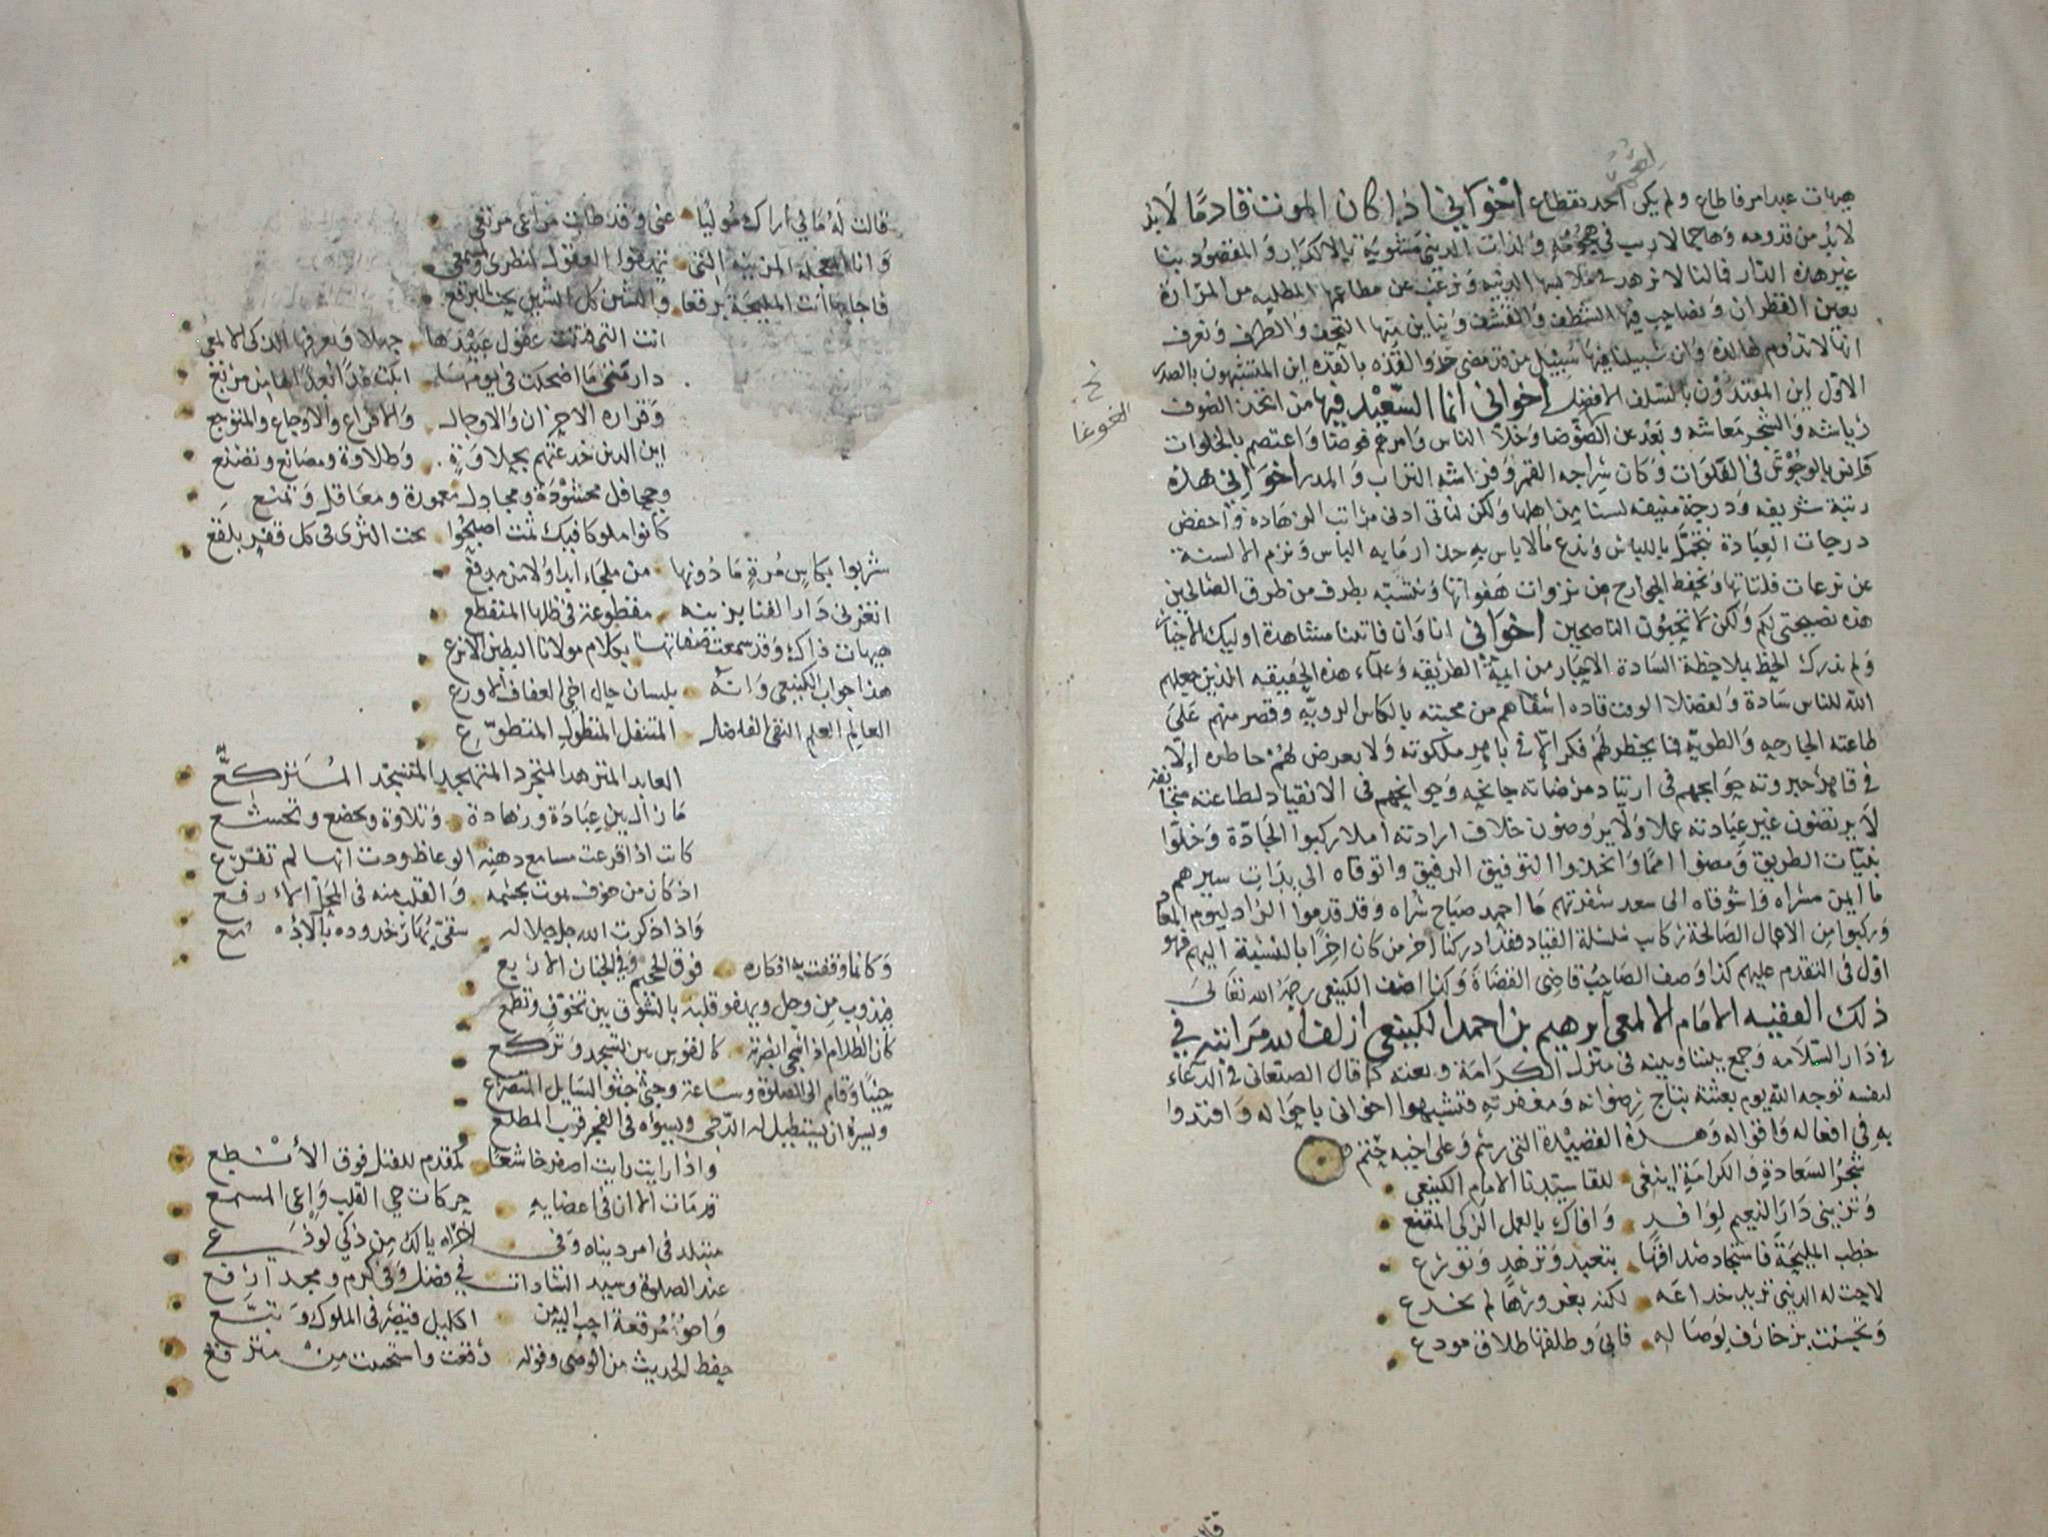 هيهات عبد امر فاطاع ولم يكن احد يقطاع اخواني اذا كان الموت قادما لابد
لابد من قدومه وهاجما لاريب في هجومه ولذات الدنيى مشوبة بالاكدار والمقصود بنا
غير هذه الدار فمالنا لا نزهد في ملابسها الدنيه ونرغب عن مطاعمها المطليه من المرارة
بعين القطران ونصاحب فيها الشظف والقشف ونباين منها التحف والطرف ونعرف
انها لا تدوم لها لذة وان سبيلنا فيها سبيل من قد مضى حذو القذه بالقذه اين المتشبهون بالصدر
الاول اين المقتدون بالسلف الافضل اخواني انما السعيد فيها من اتخذ الصوف
رياشه والشجر معاشه وبعد عن الضوضا وخلا الناس وامرهم فوضا واعتصم بالخلوات
فانس بالوحوش في الفلوات وكان سراجه القمر وفراشه التراب والمدر اخواني هذه
رتبة شريفه ودرجة منيفه لسنا من اهلها ولكن لناتي ادنى مراتب الزهادة واخفض
درجات العبادة نتجمل بالياس وندع مالاباس به حذار مابه الباس ونزم الالسنة
عن نزعات فلتاتها ونحفظ الجوارح من نزوات هفواتها ونتشبه بطرف من طرق الصالحين
هذه نصيحتي لكم ولكن لا تحبون الناصحين اخواني انا وان فاتتنا مشاهدة اوليك الاخيار
ولم ندرك الحظ بملاحظة السادة الاحبار من ايمة الطريقه وعلماء هذه الحقيقه الذين جعلهم
الله للناس سادة ولفضلا الوقت قاده اسقاهم من محبته بالكاس الرويه وقصر منهم على
طاعته الجارحه والطويه فما يخطر لهم فكر الا في باهر ملكوته ولا يعرض لهم خاطر الا
في قاهر جبروته جوانحهم في ارتياد مرضاته جانحه وجوارحهم في الانقياد لطاعته
لا يرتضون غير عبادته عملا ولا يروضون خلاف ارادته املا ركبوا الجادة وخلوا
بنيات الطريق ومضوا امما واتخذوا التوفيق الرفيق واتوقاه الى بدايات سيرهم
ما ايمن مسراه واشوقاه الى سعد سفرتهم ما احمد صباح سراه وقد قدموا الزاد ليوم المعاد
وركبوا من الاعمال الصالحة ركايب سلسلة القياد فقد ادركنا اخر من كان اخرا بالنسبة اليهم فهو
اول في التقدم عليهم كذا وصف الصاحب قاضي القضاة وكذا اصف الكينعي رحمه الله تعالى
ذلك الفقيه الامام الالمعي ابرهيم بن احمد الكينعي ازلف الله مراتبه في
في دار السلامه وجمع بيننا وبينه في منزل الكرامة وبعثه كما قال الصنعاني في الدعاء
لنفسه توجه الله يوم بعثته بتاج رضوانه ومغفرته فتشبهوا اخواني باحواله واقتدوا
به في افعاله واقواله وهذه القصيدة التي رسم وعلى اخيه ختم
شجر السعادة والكرامة اينعي للقا سيدنا الامام الكينعي
وتزيني دار النعيم لوافد وافاك بالعمل الزكي المقنع
خطب المليحة فاستجاد صداقها بتعبد وتزهد وتورع
لاحت له الدنيى تريد خداعه لكنه بغرورها لم يخدع
وتحسنت بزخارف لوصاله فابى وطلقها طلاق مودع
نخ
الغوغا
قالت له مالي اراك موليا عني وقد طابت مراعي مرتعي
وانا المزينة التي
فاجابها انت المليحة برقعا والشين كل الشين تحت البرقع
انت التي فتنت عقول عبيدها جهلا ويعرفها الذكي الالمعي
دار متى ما اضحكت في يومها ابكت غدا بعدا لها من مرتع
وقرارة الاحزان والاوجال والافزاع والاوجاع والمتوجع
اين الذين خدعتهم بحلاوة وطلاوة ومصانع وتصنع
وجحافل محشودة ومجادل معمورة ومعاقل وتمنع
كانوا ملوكا فيك ثمت اصبحوا تحت الثرى في كل قفر بلقع
شربوا بكاس مرة ما دونها من ملجاء ابدا ولا من مدفع
اتغرني دار الفنا بزينه مقطوعة في ظلها المتقطع
هيهات ذاك وقد سمعت صفاتها بكلام مولانا البطين الانزع
هذا جواب الكينعي وانه بلسان حال اخي العفاف الاورع
العالم العلم التقي الفاضل المتنفل المتطول المتطوع
العابد المتزهد المتجرد المتهجد المتسجد المتركع
مازال دين عبادة وزهادة وتلاوة وتخضع وتخشع
كانت اذا قرعت مسامع ذهنه الوعاظ ودت انها لم تقرع
اذ كان من خوف يموت بجسمه والقلب منه في المحل الارفع
واذا ذكرت الله جل جلاله
وكانما وقفت به افكاره فوق الجحيم وفي الجنان الاربع
فيذوب من وجل ويهفو قلبه بالشوق بين تخوف وتطمع
كان الظلام اذا انجى ابصرته كالقوس بين تسجد وتركع
حينا وقام الى الصلوة وساعة وجثى جثو السايل المتضرع
ويسره ان يستطيل له الدجى ويسواه في الفجر قرب المطلع
واذا رايت رايت اصفر خاشعا كمقدم للقتل فوق الانطع
قد مات الا ان في اعضايه حركات حي القلب واعي المسمع
متبلد في امر دنياه وفي اخراه يالك من ذكي لوذعي
عند الصلوة وسيد السادات في فضل وفي كرم ومجد ارفع
واحوز مرقعة احب اليه من اكليل قيصر في الملوك وتبع
حفظ الحديث من الوصي وقوله رقعت واستحييت من مترقع